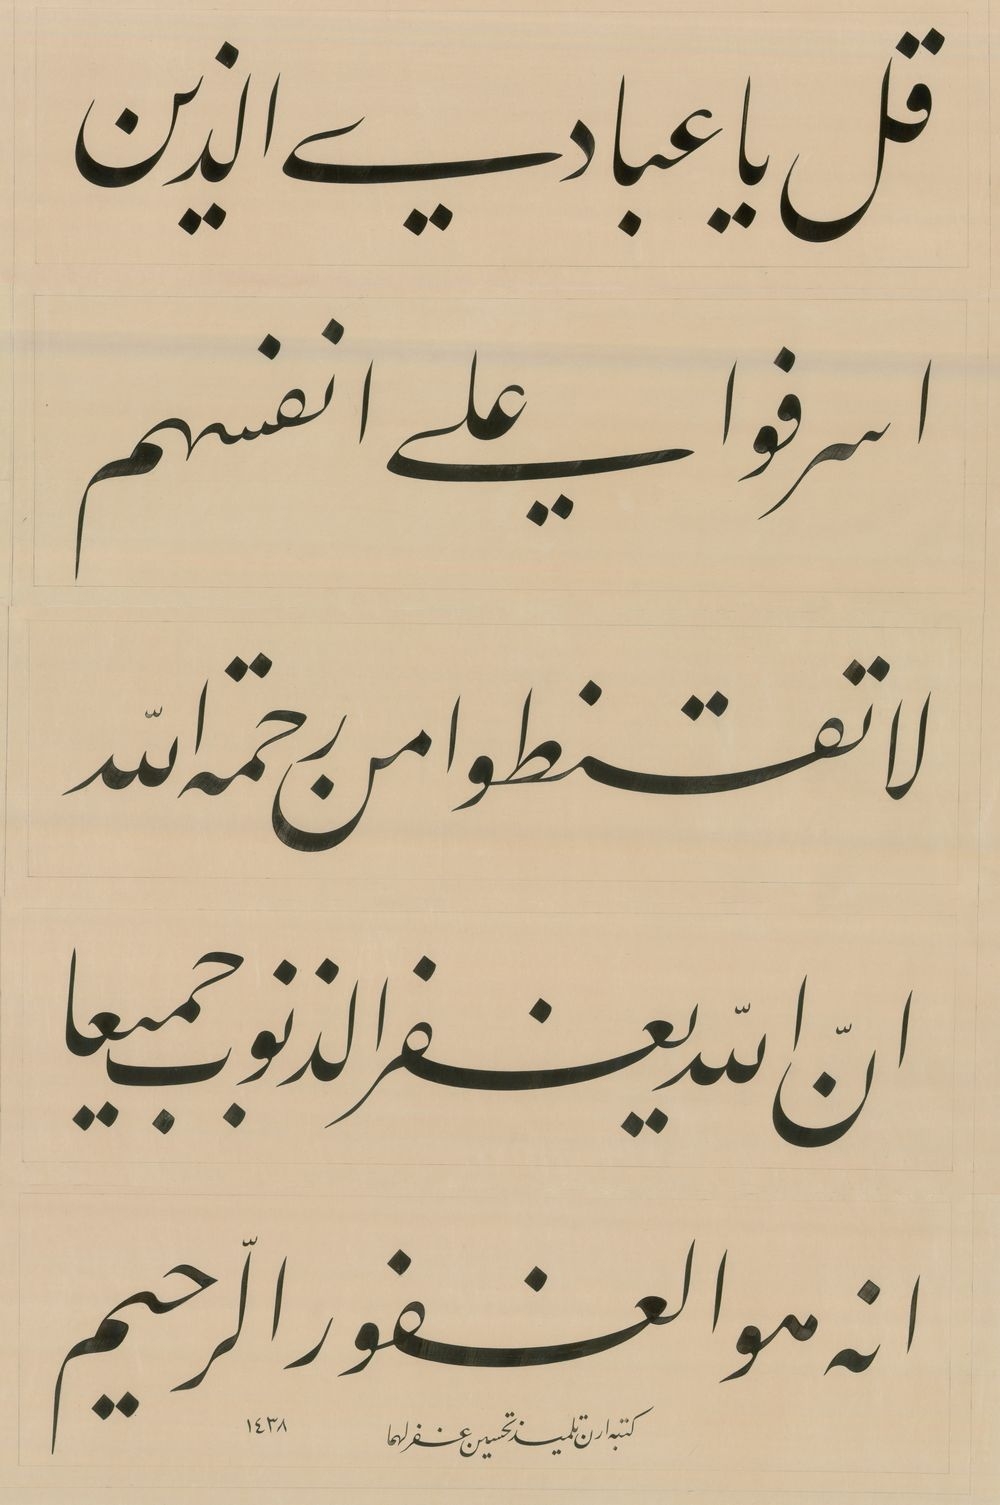 قل يا عبادي الذين
اسرفوا علي انفسهم
لا تقنطوا من رحمة اللّه
انّ اللّه يغفر الذنوب جميعا
انه هو الغفور الرّحيم
كتبه ارن تلميذ تحسين غفر لهما
١٤٣٨